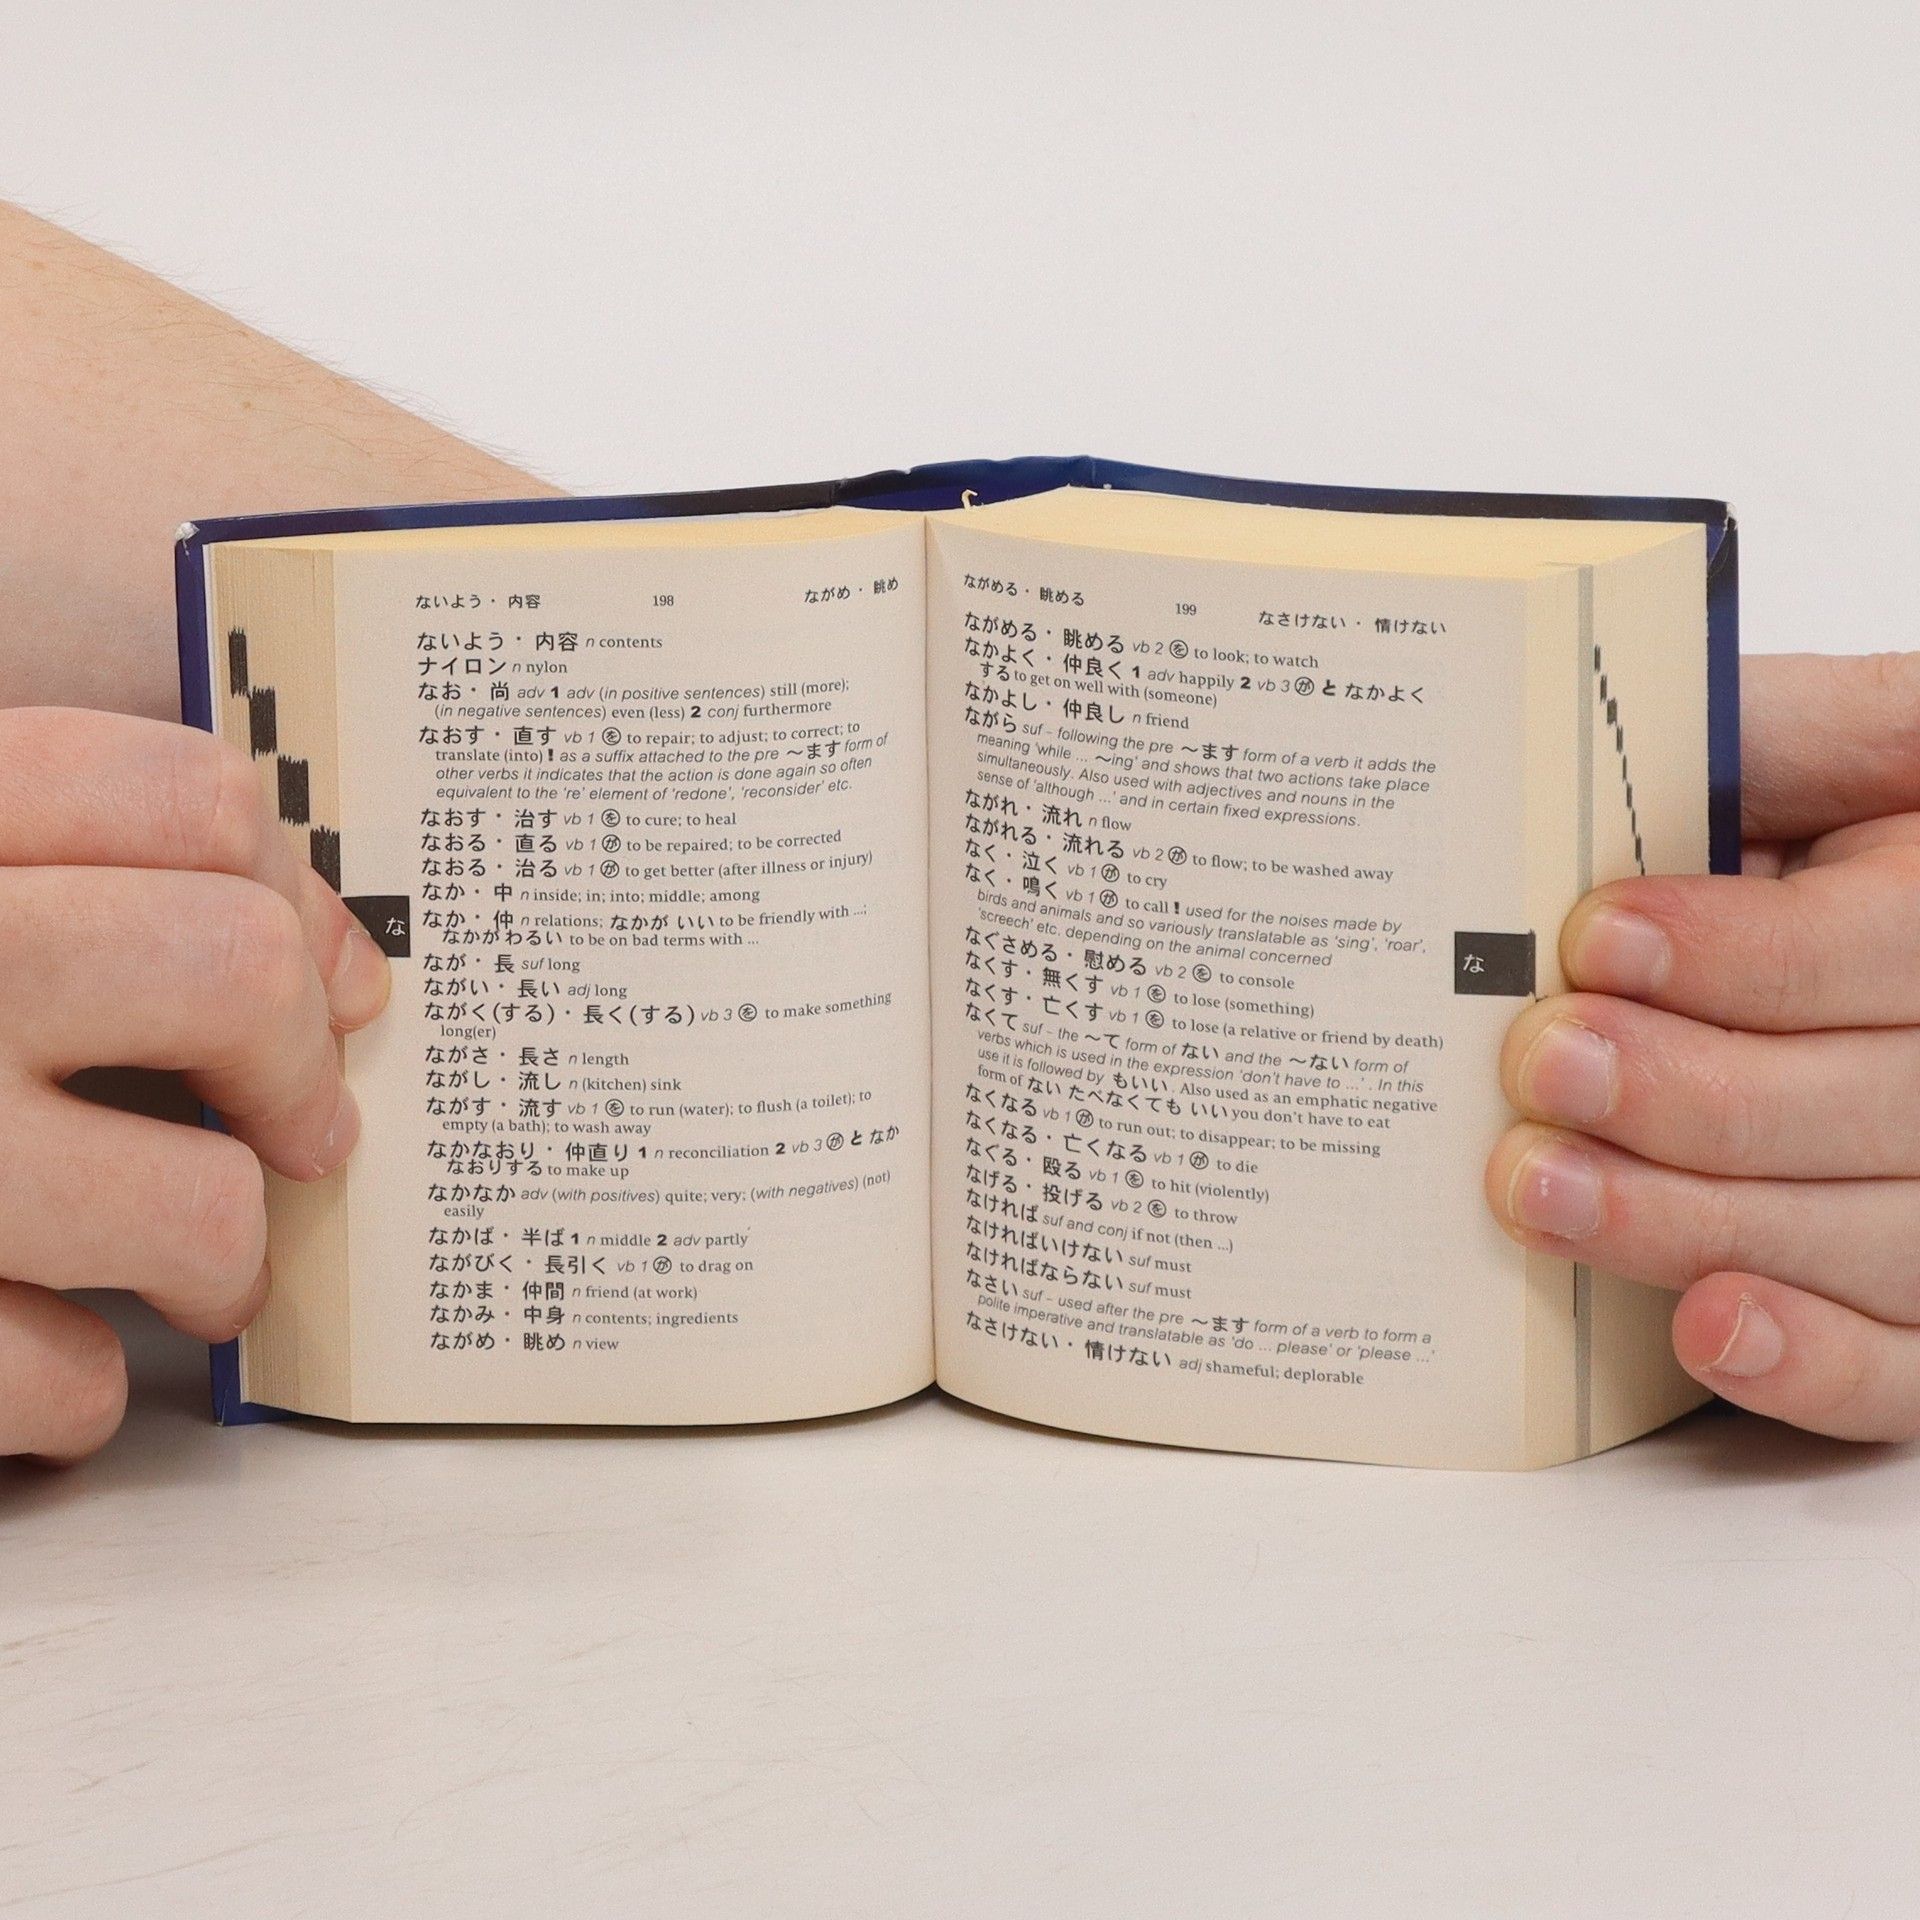 ないよう・内容 198 ながめ・眺め
ないよう・内容 n contents
ナイロン n nylon
なお・尚 adv 1 adv (in positive sentences) still (more);
(in negative sentences) even (less) 2 conj furthermore
なおす・直す vb 1 ㋾ to repair; to adjust; to correct; to
translate (into) ! as a suffix attached to the pre 〜ます form of
other verbs it indicates that the action is done again so often
equivalent to the 're' element of 'redone', 'reconsider' etc.
なおす・治す vb 1 ㋾ to cure; to heal
なおる・直る vb 1 ㋕ to be repaired; to be corrected
なおる・治る vb 1 ㋕ to get better (after illness or injury)
なか・中 n inside; in; into; middle; among
なか・仲 n relations; なかが いい to be friendly with ...;
なかが わるい to be on bad terms with ...
なが・長 suf long
ながい・長い adj long
ながく(する)・長く(する) vb 3 ㋾ to make something
long(er)
ながさ・長さ n length
ながし・流し n (kitchen) sink
ながす・流す vb 1 ㋾ to run (water); to flush (a toilet); to
empty (a bath); to wash away
なかなおり・仲直り 1 n reconciliation 2 vb 3 ㋕ と なか
なおりする to make up
なかなか adv (with positives) quite; very; (with negatives) (not)
easily
なかば・半ば 1 n middle 2 adv partly
ながびく・長引く vb 1 ㋕ to drag on
なかま・仲間 n friend (at work)
なかみ・中身 n contents; ingredients
ながめ・眺め n view
な
ながめる・眺める 199 なさけない・情けない
ながめる・眺める vb 2 ㋾ to look; to watch
なかよく・仲良く 1 adv happily 2 vb 3 ㋕ と なかよく
する to get on well with (someone)
なかよし・仲良し n friend
ながら suf – following the pre 〜ます form of a verb it adds the
meaning 'while ... 〜ing' and shows that two actions take place
simultaneously. Also used with adjectives and nouns in the
sense of 'although ...' and in certain fixed expressions.
ながれ・流れ n flow
ながれる・流れる vb 2 ㋕ to flow; to be washed away
なく・泣く vb 1 ㋕ to cry
なく・鳴く vb 1 ㋕ to call ! used for the noises made by
birds and animals and so variously translatable as 'sing', 'roar',
'screech' etc. depending on the animal concerned
なぐさめる・慰める vb 2 ㋾ to console
なくす・無くす vb 1 ㋾ to lose (something)
なくす・亡くす vb 1 ㋾ to lose (a relative or friend by death)
なくて suf – the 〜て form of ない and the 〜ない form of
verbs which is used in the expression 'don't have to ...' . In this
use it is followed by もいい. Also used as an emphatic negative
form of ない たべなくても いい you don't have to eat
なくなる vb 1 ㋕ to run out; to disappear; to be missing
なくなる・亡くなる vb 1 ㋕ to die
なぐる・殴る vb 1 ㋾ to hit (violently)
なげる・投げる vb 2 ㋾ to throw
なければ suf and conj if not (then ...)
なければいけない suf must
なければならない suf must
なさい suf – used after the pre 〜ます form of a verb to form a
polite imperative and translatable as 'do ... please' or 'please ...'
なさけない・情けない adj shameful; deplorable
な